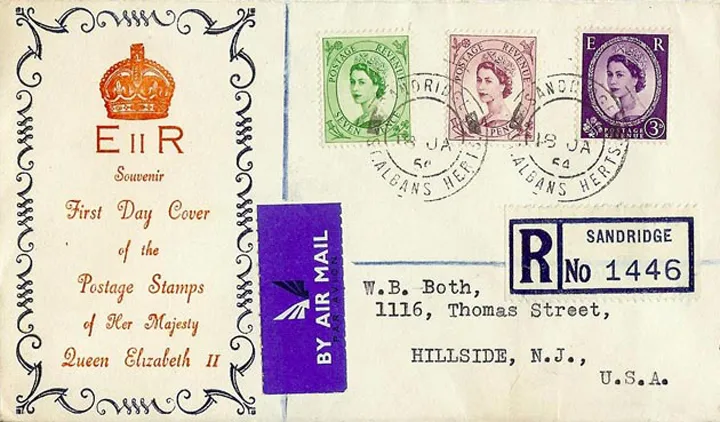 E II R
Souvenir
First Day Cover
of the
Postage Stamps
of Her Majesty
Queen Elizabeth II
POSTAGE REVENUE
SEVEN PENCE
POSTAGE REVENUE
PENCE
E R
POSTAGE REVENUE 3D
SANDRIDGE
18 JA
54
ST. ALBANS HERTS.
SANDRIDGE
18 JA
54
ST. ALBANS HERTS.
BY AIR MAIL
PAR AVION
R
SANDRIDGE
No 1446
W.B. Both,
1116, Thomas Street,
HILLSIDE, N.J.,
U.S.A.